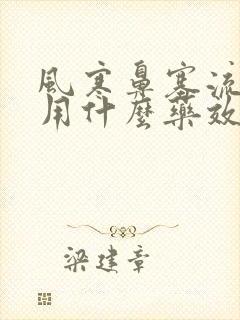 風寒鼻塞流
用什麼藥效
梁建章